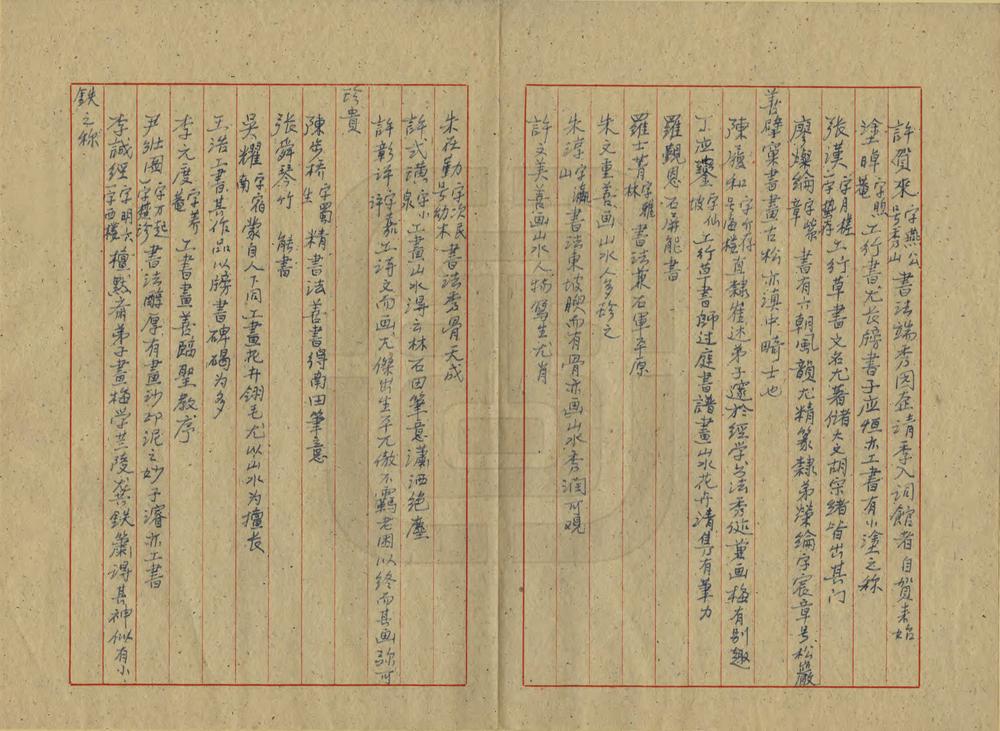 許賀來字燕公号秀山書法端秀因並清季入詞館者自賀來始
塗晫字煦菴工行書尤长牓書子应恒亦工書有小塗之称
张漢字月槎一字蟄存工行草書文名尤著储大文胡宗绪皆出其门
廖燦綸字紫章書有六朝風韻尤精篆隸弟榮綸字宸章号松巖
善擘窠書畫古松亦滇中畸士也
陳履和字介存号海樓肖隸崔述弟子邃於經学书法秀逸兼画梅有别趣
丁应鑾字仙坡工行草書師过庭書譜畫山水花卉清隽有筆力
羅觐恩石屏能書
羅士菁字雅林書法兼右軍平原
朱文重善画山水人多珍之
朱淳字瀛山書法東坡腴而有骨亦画山水秀潤可观
許文美善画山水人物寫生尤肖
朱在勤字次民号幼木書法秀骨天成
許式潢字小泉工畫山水得云林石田筆意瀟洒絕塵
許彰评字嘉评工诗文而画尤傑出生平兀傲不羈老困以终而其画弥可
珍貴
陳步桥字蜀生精書法善書得南田筆意
張舜琴竹能書
吴耀南字宿南蒙自人下同工畫花卉翎毛尤以山水为擅长
王浩工書其作品以牓書碑碣为多
李元度字养菴工書畫善臨聖教序
尹壮圖字万起一字楚珍書法醇厚有畫沙印泥之妙子濬亦工書
李誠經字明六一字西樓檀默斋弟子畫梅学兰陵龚鉄簫得其神似有小
鉄之称